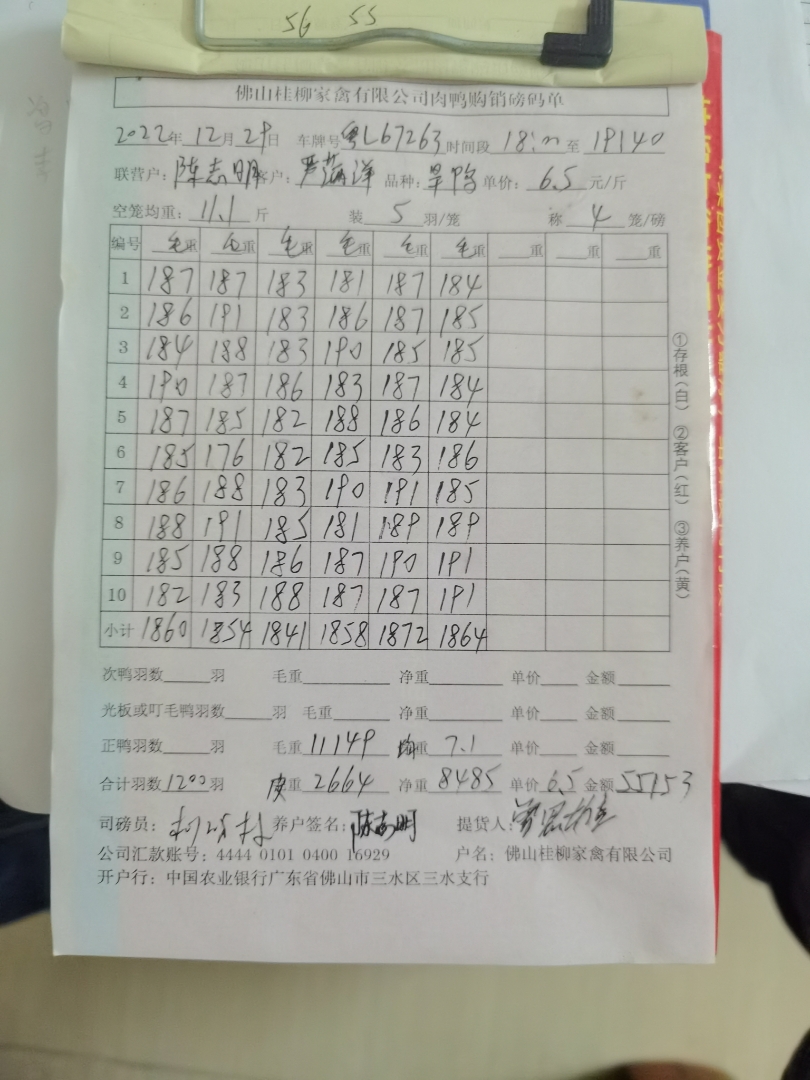 56 55
佛山桂柳家禽有限公司肉鸭购销磅码单
2022年 12月 29日 车牌号粤L67263 时间段 18:00 至 19:40
联营户: 陈志明 客户: 严 洋 品种: 旱鸭 单价: 6.5 元/斤
空笼均重: 11.1 斤 装 5 羽/笼 称 4 笼/磅
编号 毛重 毛重 毛重 毛重 毛重 毛重 重 重 重
1 187 187 183 181 187 184
2 186 191 183 186 187 185
3 184 188 183 190 185 185
4 190 187 186 183 187 184
5 187 185 182 188 186 184
6 185 176 182 185 183 186
7 186 188 183 190 191 185
8 188 191 185 181 189 189
9 185 188 186 187 190 191
10 182 183 188 187 187 191
小计 1860 1854 1841 1858 1872 1864
次鸭羽数 羽 毛重 净重 单价 金额
光板或叮毛鸭羽数 羽 毛重 净重 单价 金额
正鸭羽数 羽 毛重 11149 均重 7.1 单价 金额
合计羽数 1200 羽 皮重 2664 净重 8485 单价 6.5 金额 55153
司磅员: 养户签名: 陈志明 提货人:
公司汇款账号: 4444 0101 0400 16929 户名: 佛山桂柳家禽有限公司
开户行: 中国农业银行广东省佛山市三水区三水支行
①存根(白) ②客户(红) ③养户(黄)